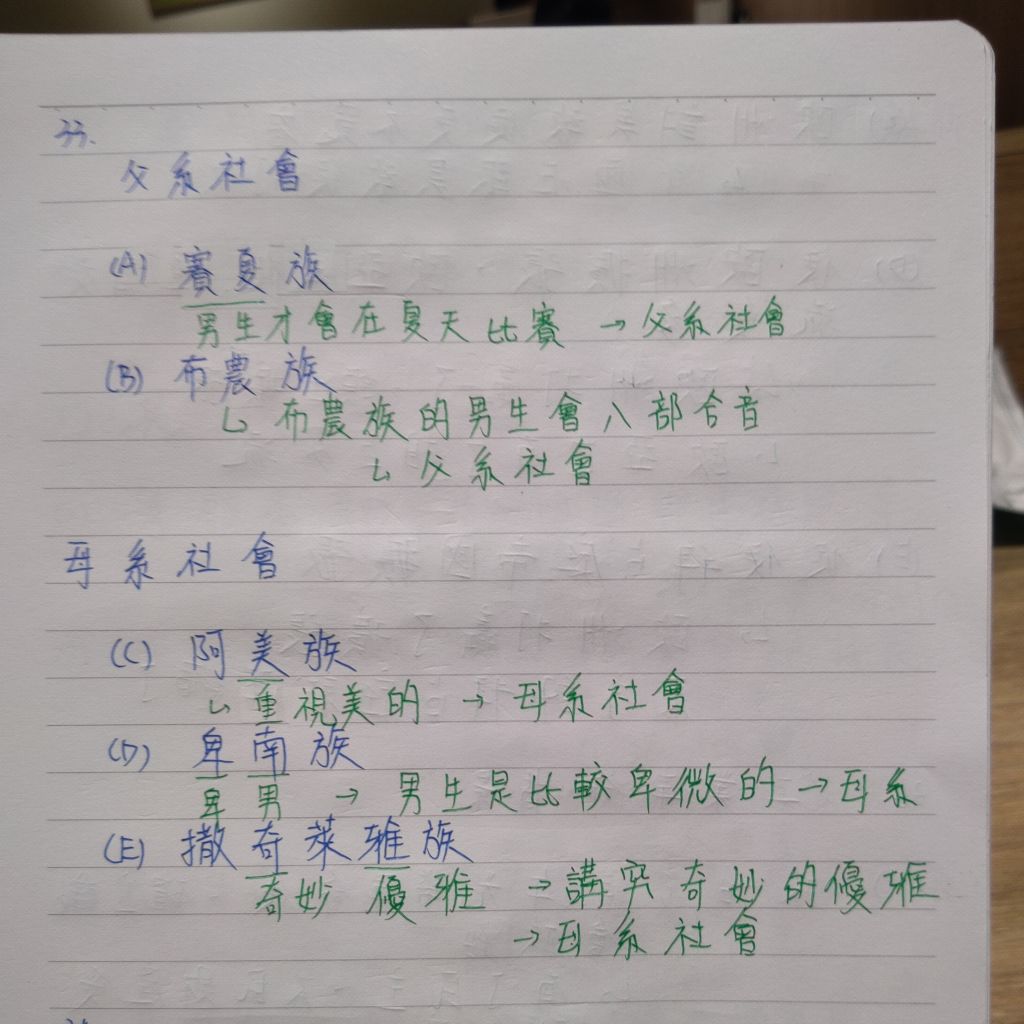 33.
父系社會
(A) 賽夏族
男生才會在夏天比賽 → 父系社會
(B) 布農族
↳ 布農族的男生會八部合音
↳ 父系社會
母系社會
(C) 阿美族
↳ 重視美的 → 母系社會
(D) 卑南族
卑男 → 男生是比較卑微的 → 母系
(E) 撒奇萊雅族
奇妙 優雅 → 講究奇妙的優雅
→ 母系社會